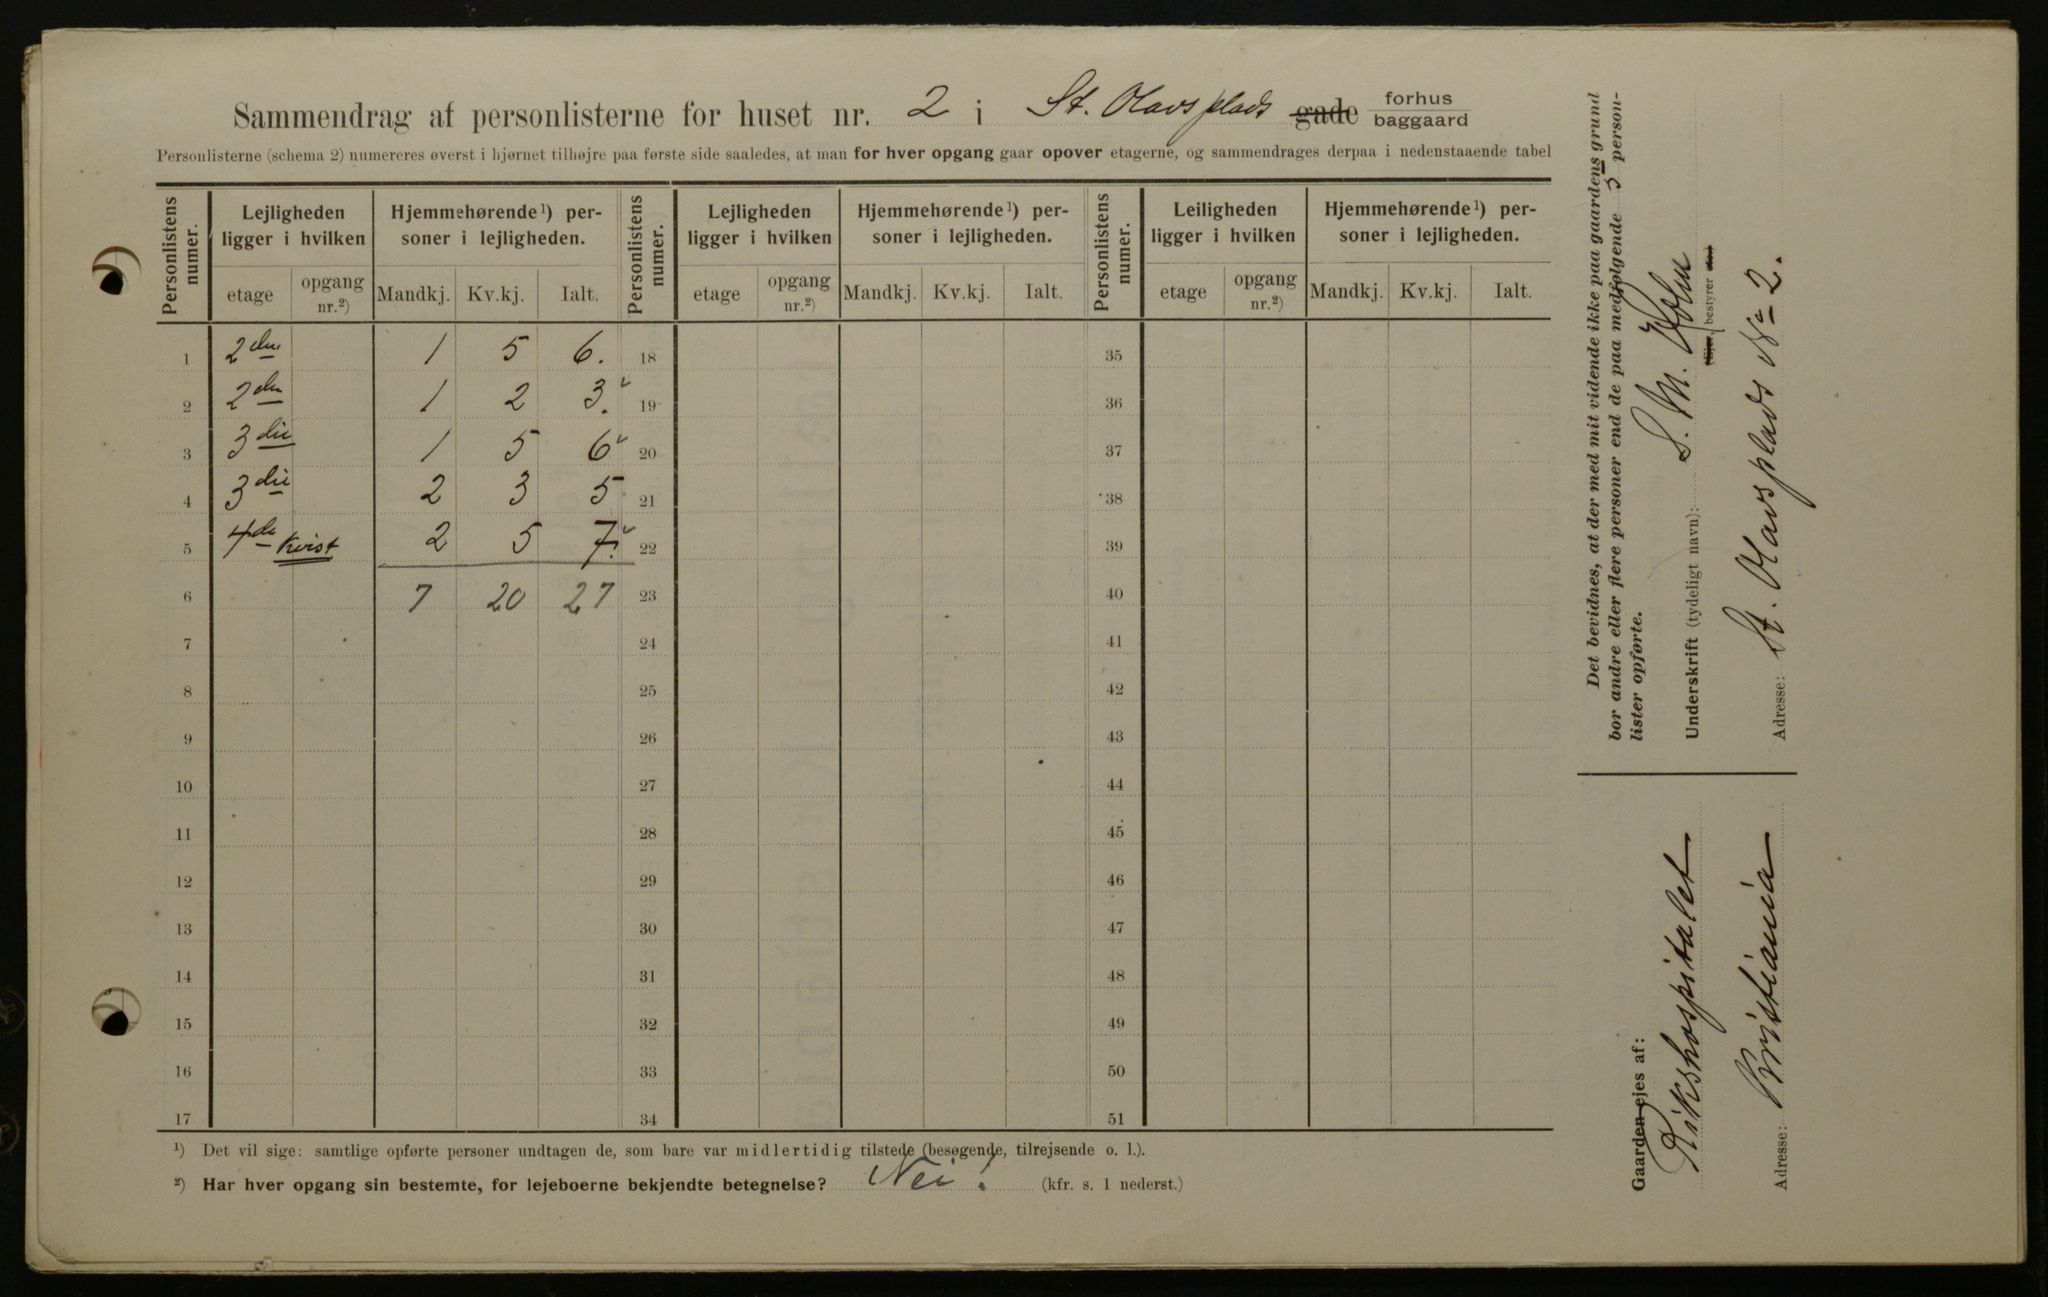 Sammendrag af personlisterne for huset nr. 2 i St. Olavsplads gade forhus baggaard
Personlisterne (schema 2) numereres øverst i hjørnet tilhøjre paa første side saaledes, at man for hver opgang gaar opover etagerne, og sammendrages derpaa i nedenstaaende tabel
Personlistens numer. Lejligheden ligger i hvilken Hjemmehørende ¹) personer i lejligheden. Personlistens numer. Lejligheden ligger i hvilken Hjemmehørende ¹) personer i lejligheden. Personlistens numer. Leiligheden ligger i hvilken Hjemmehørende ¹) personer i lejligheden.
etage opgang nr.²) Mandkj. Kv.kj. Ialt. etage opgang nr.²) Mandkj. Kv.kj. Ialt. etage opgang nr.²) Mandkj. Kv.kj. Ialt.
1 2den 1 5 6. 18 35
2 2den 1 2 3. 19 36
3 3die 1 5 6 20 37
4 3die 2 3 5 21 38
5 4de Kvist 2 5 7. 22 39
6 7 20 27 23 40
7 24 41
8 25 42
9 26 43
10 27 44
11 28 45
12 29 46
13 30 47
14 31 48
15 32 49
16 33 50
17 34 51
¹) Det vil sige: samtlige opførte personer undtagen de, som bare var midlertidig tilstede (besøgende, tilrejsende o. l.).
²) Har hver opgang sin bestemte, for lejeboerne bekjendte betegnelse? Nei! (kfr. s. 1 nederst.)
Det bevidnes, at der med mit vidende ikke paa gaardens grund
bor andre eller flere personer end de paa medfølgende 5 person-
lister opførte.
Underskrift (tydeligt navn): S. M. Holm
(Ejer, bestyrer
Adresse: St. Olavsplads No 2.
Gaarden ejes af:
Rikshospitalet
Adresse: Kristiania